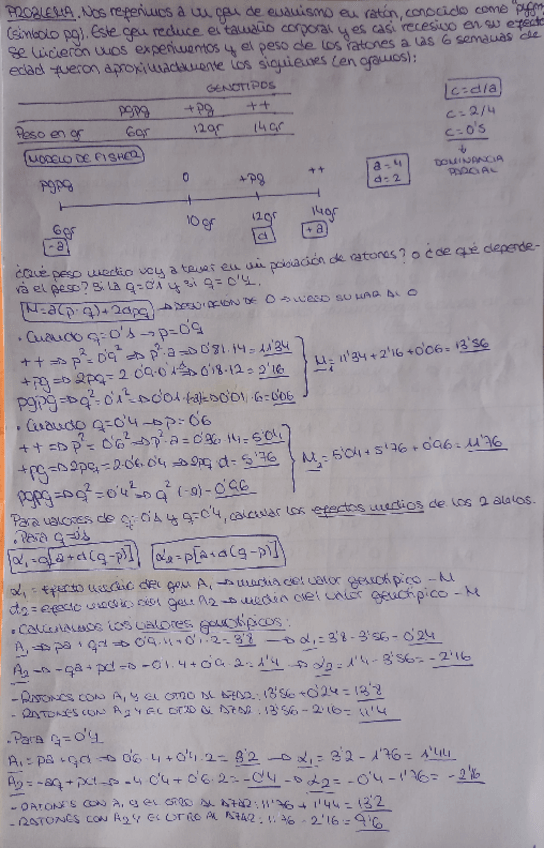 PROBLEMA. Nos referimos a un gen de enanismo en ratón, conocido como "pygmy"
(símbolo pg). Este gen reduce el tamaño corporal y es casi recesivo en su efecto
Se hicieron unos experimentos y el peso de los ratones a las 6 semanas de
edad fueron aproximadamente los siguientes (en gramos):
GENOTIPOS
pgpg +pg ++
Peso en gr 6gr 12gr 14gr
c=d/a
c=2/4
c=0'5
DOMINANCIA
PARCIAL
MODELO DE FISHER
a=4
d=2
pgpg 0 +pg ++
6gr 10gr 12gr 14gr
-a d +a
¿Qué peso medio voy a tener en mi población de ratones? o ¿de qué depende-
rá el peso? Si la q=0'1 y si q=0'4.
M=a(p-q)+2dpq → DESVIACIÓN DE 0 → LUEGO SUMAR AL 0
• Cuando q=0'1 → p=0'9
++ ⇒ p²=0'9² ⇒ p²·a ⇒ 0'81·14=11'34
+pg ⇒ 2pq=2·0'9·0'1 ⇒ 0'18·12=2'16
pgpg ⇒ q²=0'1² ⇒ 0'01·(-a) ⇒ 0'01·6=0'06
M₁=11'34+2'16+0'06=13'56
• Cuando q=0'4 → p=0'6
++ ⇒ p²=0'6² ⇒ p²·a=0'36·14=5'04
+pg ⇒ 2pq=2·0'6·0'4 ⇒ 2pq·d=5'76
pgpg ⇒ q²=0'4² ⇒ q²·(-a)=0'96
M₂=5'04+5'76+0'96=11'76
Para valores de q=0'1 y q=0'4, calcular los efectos medios de los 2 alelos.
• Para q=0'1
α₁=q[a+d(q-p)] α₂=p[a+d(q-p)]
α₁=efecto medio del gen A₁ → media del valor genotípico - M
α₂=efecto medio del gen A₂ → media del valor genotípico - M
• Calculamos los valores genotípicos:
A₁ ⇒ pa+qd ⇒ 0'9·4+0'1·2=3'8 → α₁=3'8-3'56=0'24
A₂ ⇒ -qa+pd ⇒ -0'1·4+0'9·2=1'4 → α₂=1'4-3'56=-2'16
- RATONES CON A₁ Y EL OTRO AL AZAR: 13'56+0'24=13'8
- RATONES CON A₂ Y EL OTRO AL AZAR: 13'56-2'16=11'4
• Para q=0'4
A₁=pa+qd ⇒ 0'6·4+0'4·2=3'2 → α₁=3'2-1'76=1'44
A₂=-aq+pd ⇒ -4·0'4+0'6·2=-0'4 → α₂=-0'4-1'76=-2'16
- RATONES CON A₁ Y EL OTRO AL AZAR: 11'76+1'44=13'2
- RATONES CON A₂ Y EL OTRO AL AZAR: 11'76-2'16=9'6